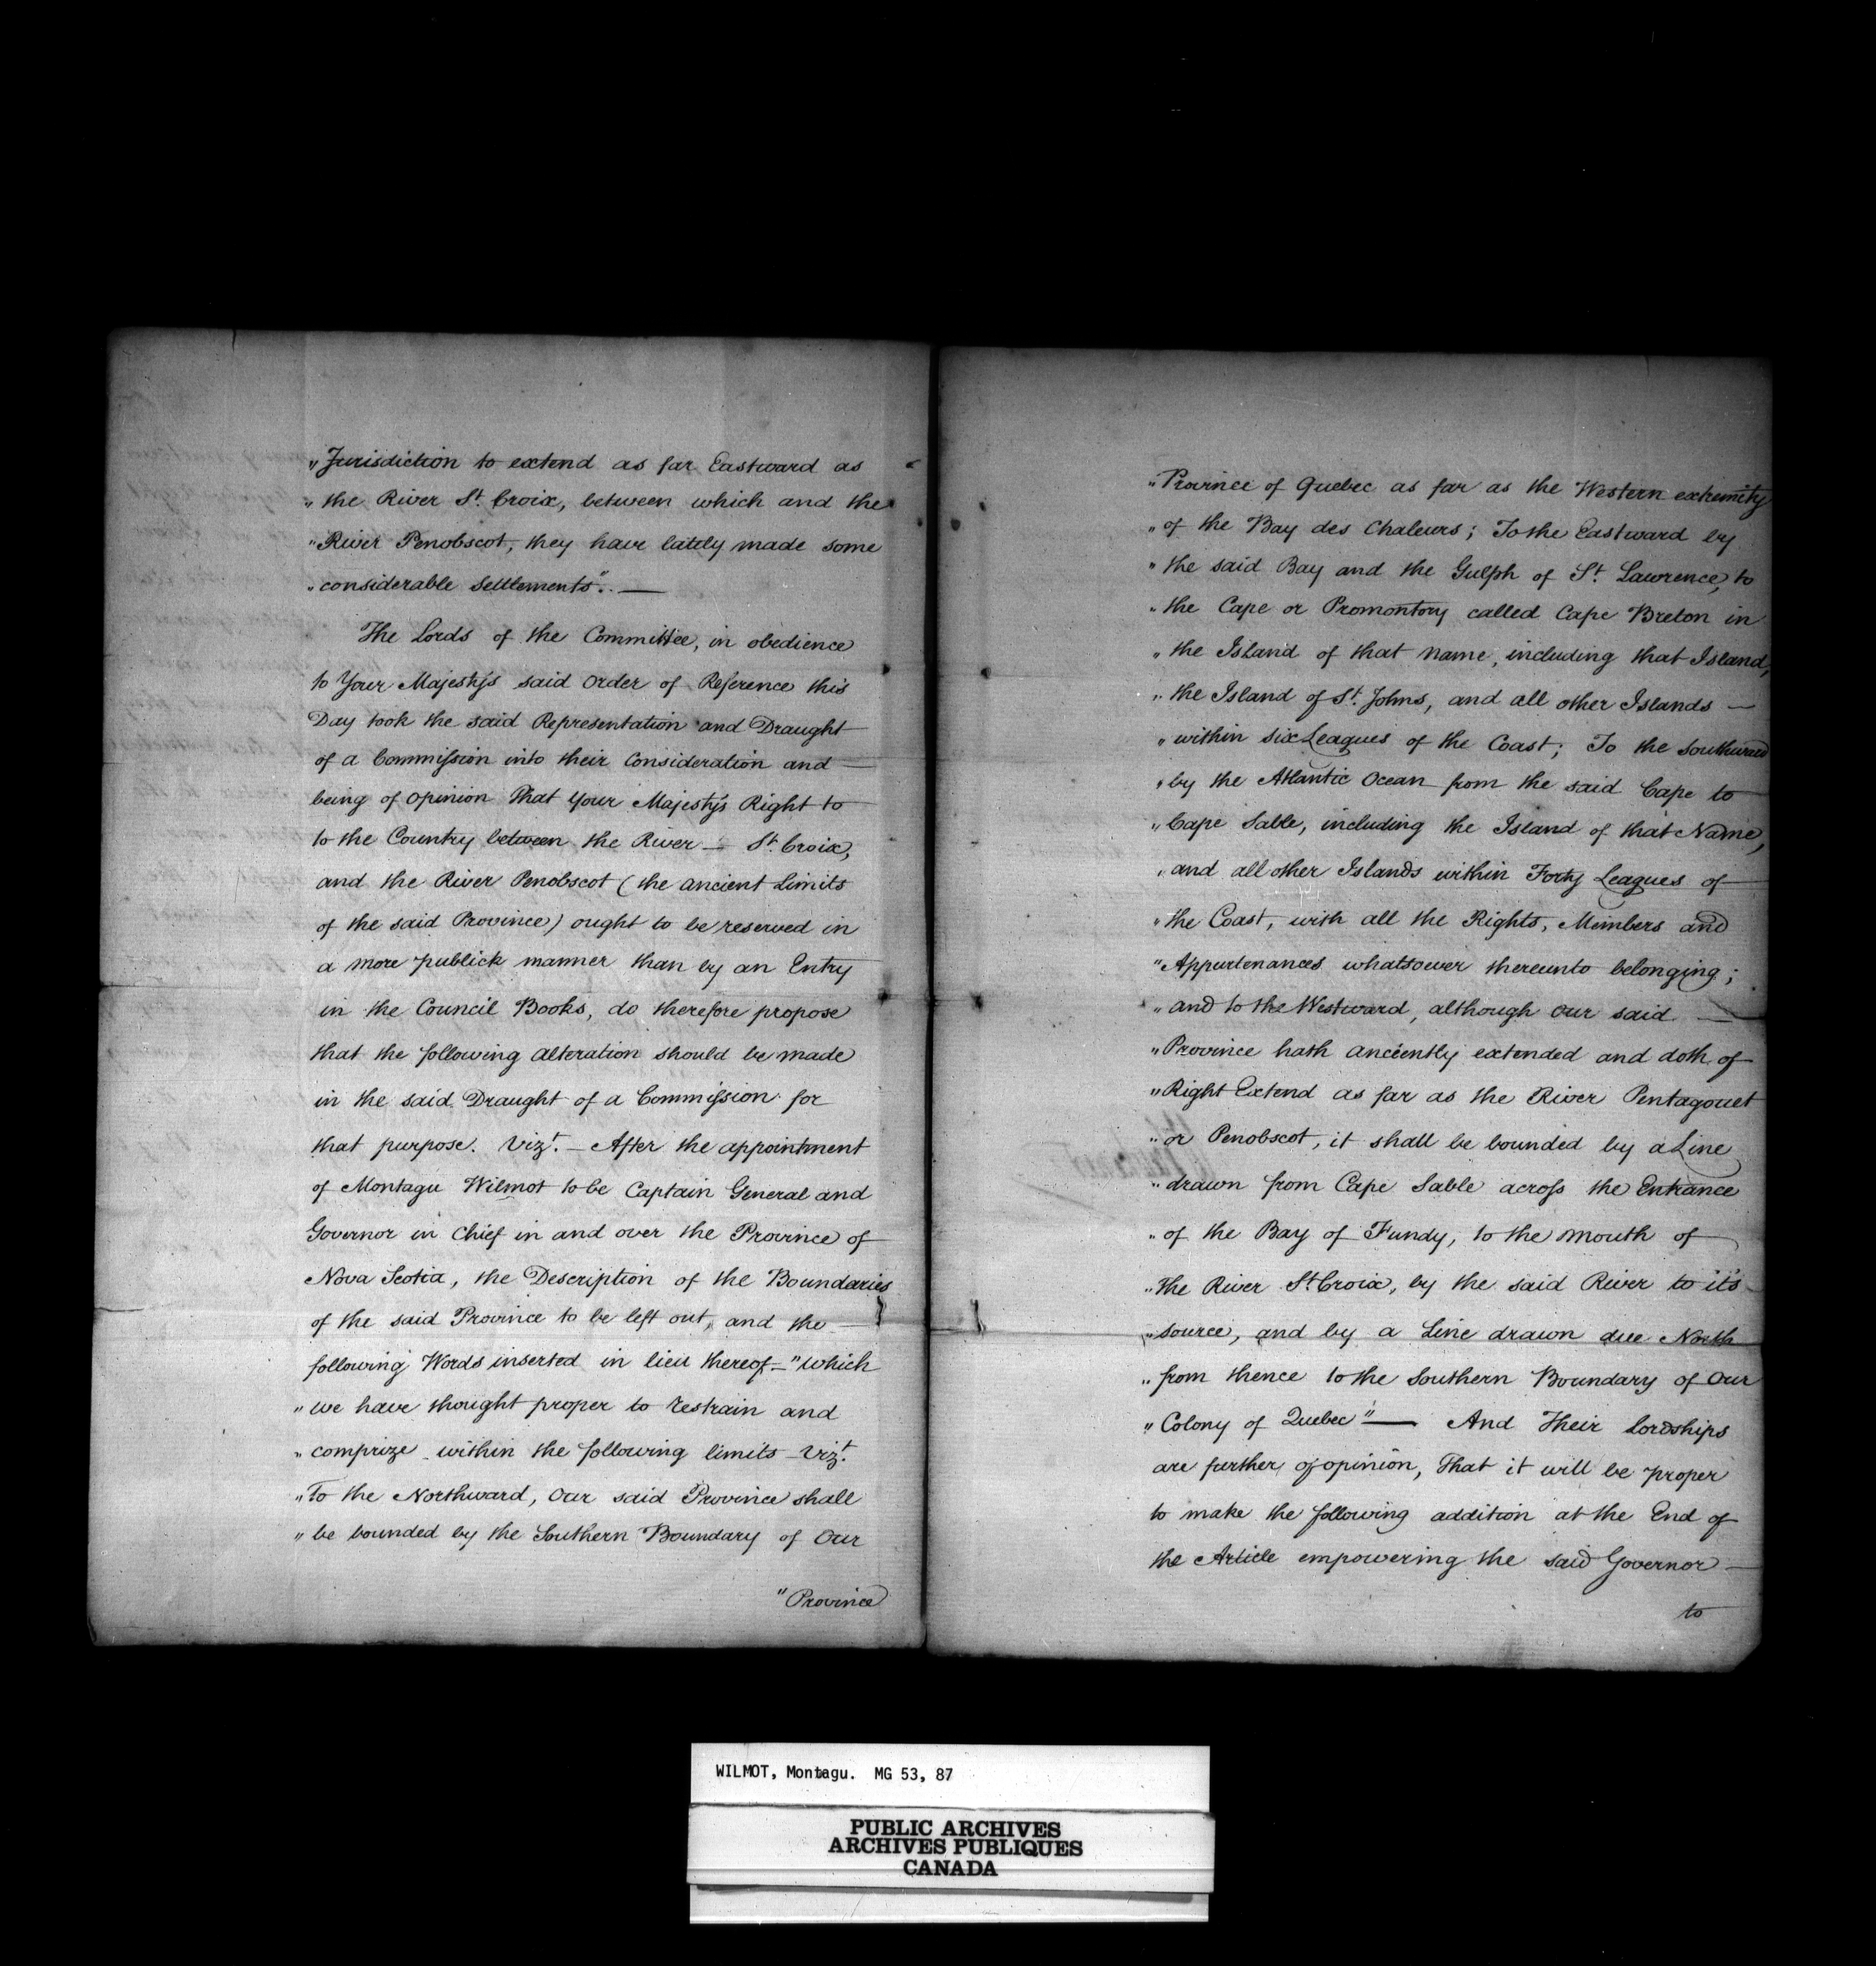 "Jurisdiction to extend as far Eastward as
"the River St. Croix, between which and the
"River Penobscot, they have lately made some
"considerable Settlements". —
The Lords of the Committee, in obedience
to Your Majesty's said Order of Reference this
Day took the said Representation and Draught
of a Commission into their Consideration and —
being of Opinion That Your Majesty's Right to
to the Country between the River — St. Croix,
and the River Penobscot (the ancient Limits
of the said Province) ought to be reserved in
a more publick manner than by an Entry
in the Council Books, do therefore propose
that the following alteration should be made
in the said Draught of a Commission for
that purpose. Vizt. — After the appointment
of Montagu Wilmot to be Captain General and
Governor in Chief in and over the Province of
Nova Scotia, the Description of the Boundaries
of the said Province to be left out, and the —
following Words inserted in lieu thereof — "which
"we have thought proper to restrain and
"comprize within the following limits — Vizt.
"To the Northward, Our said Province shall
"be bounded by the Southern Boundary of Our
"Province
"Province of Quebec as far as the Western extremity
"of the Bay des Chaleurs; To the Eastward by
"the said Bay and the Gulph of St. Lawrence, to
"the Cape or Promontory called Cape Breton in
"the Island of that name, including that Island,
"the Island of St. Johns, and all other Islands —
"within six Leagues of the Coast; To the Southward
"by the Atlantic Ocean from the said Cape to
"Cape Sable, including the Island of that Name,
"and all other Islands within Forty Leagues of
"the Coast, with all the Rights, Members and
"Appurtenances whatsoever thereunto belonging;
"and to the Westward, although Our said —
"Province hath anciently extended and doth of
"Right Extend as far as the River Pentagouet
"or Penobscot, it shall be bounded by a Line
"drawn from Cape Sable across the Entrance
"of the Bay of Fundy, to the Mouth of
"the River St. Croix, by the said River to it's
"source, and by a Line drawn due North
"from thence to the Southern Boundary of Our
"Colony of Quebec" — And Their Lordships
are further of opinion, That it will be proper
to make the following addition at the End of
the Article empowering the said Governor —
to
WILMOT, Montagu. MG 53, 87
PUBLIC ARCHIVES
ARCHIVES PUBLIQUES
CANADA